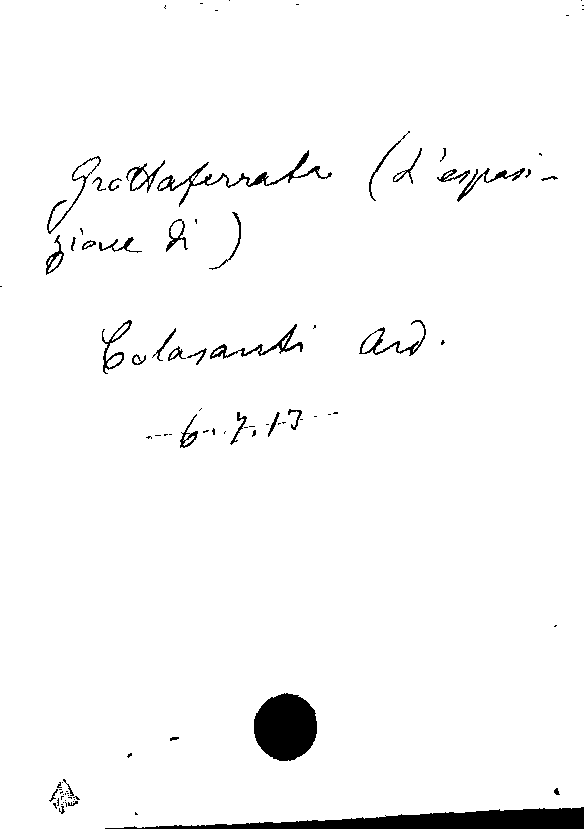 Grottaferrata (L'esposi-
zione di)
Colasanti Ard.
6.7.13